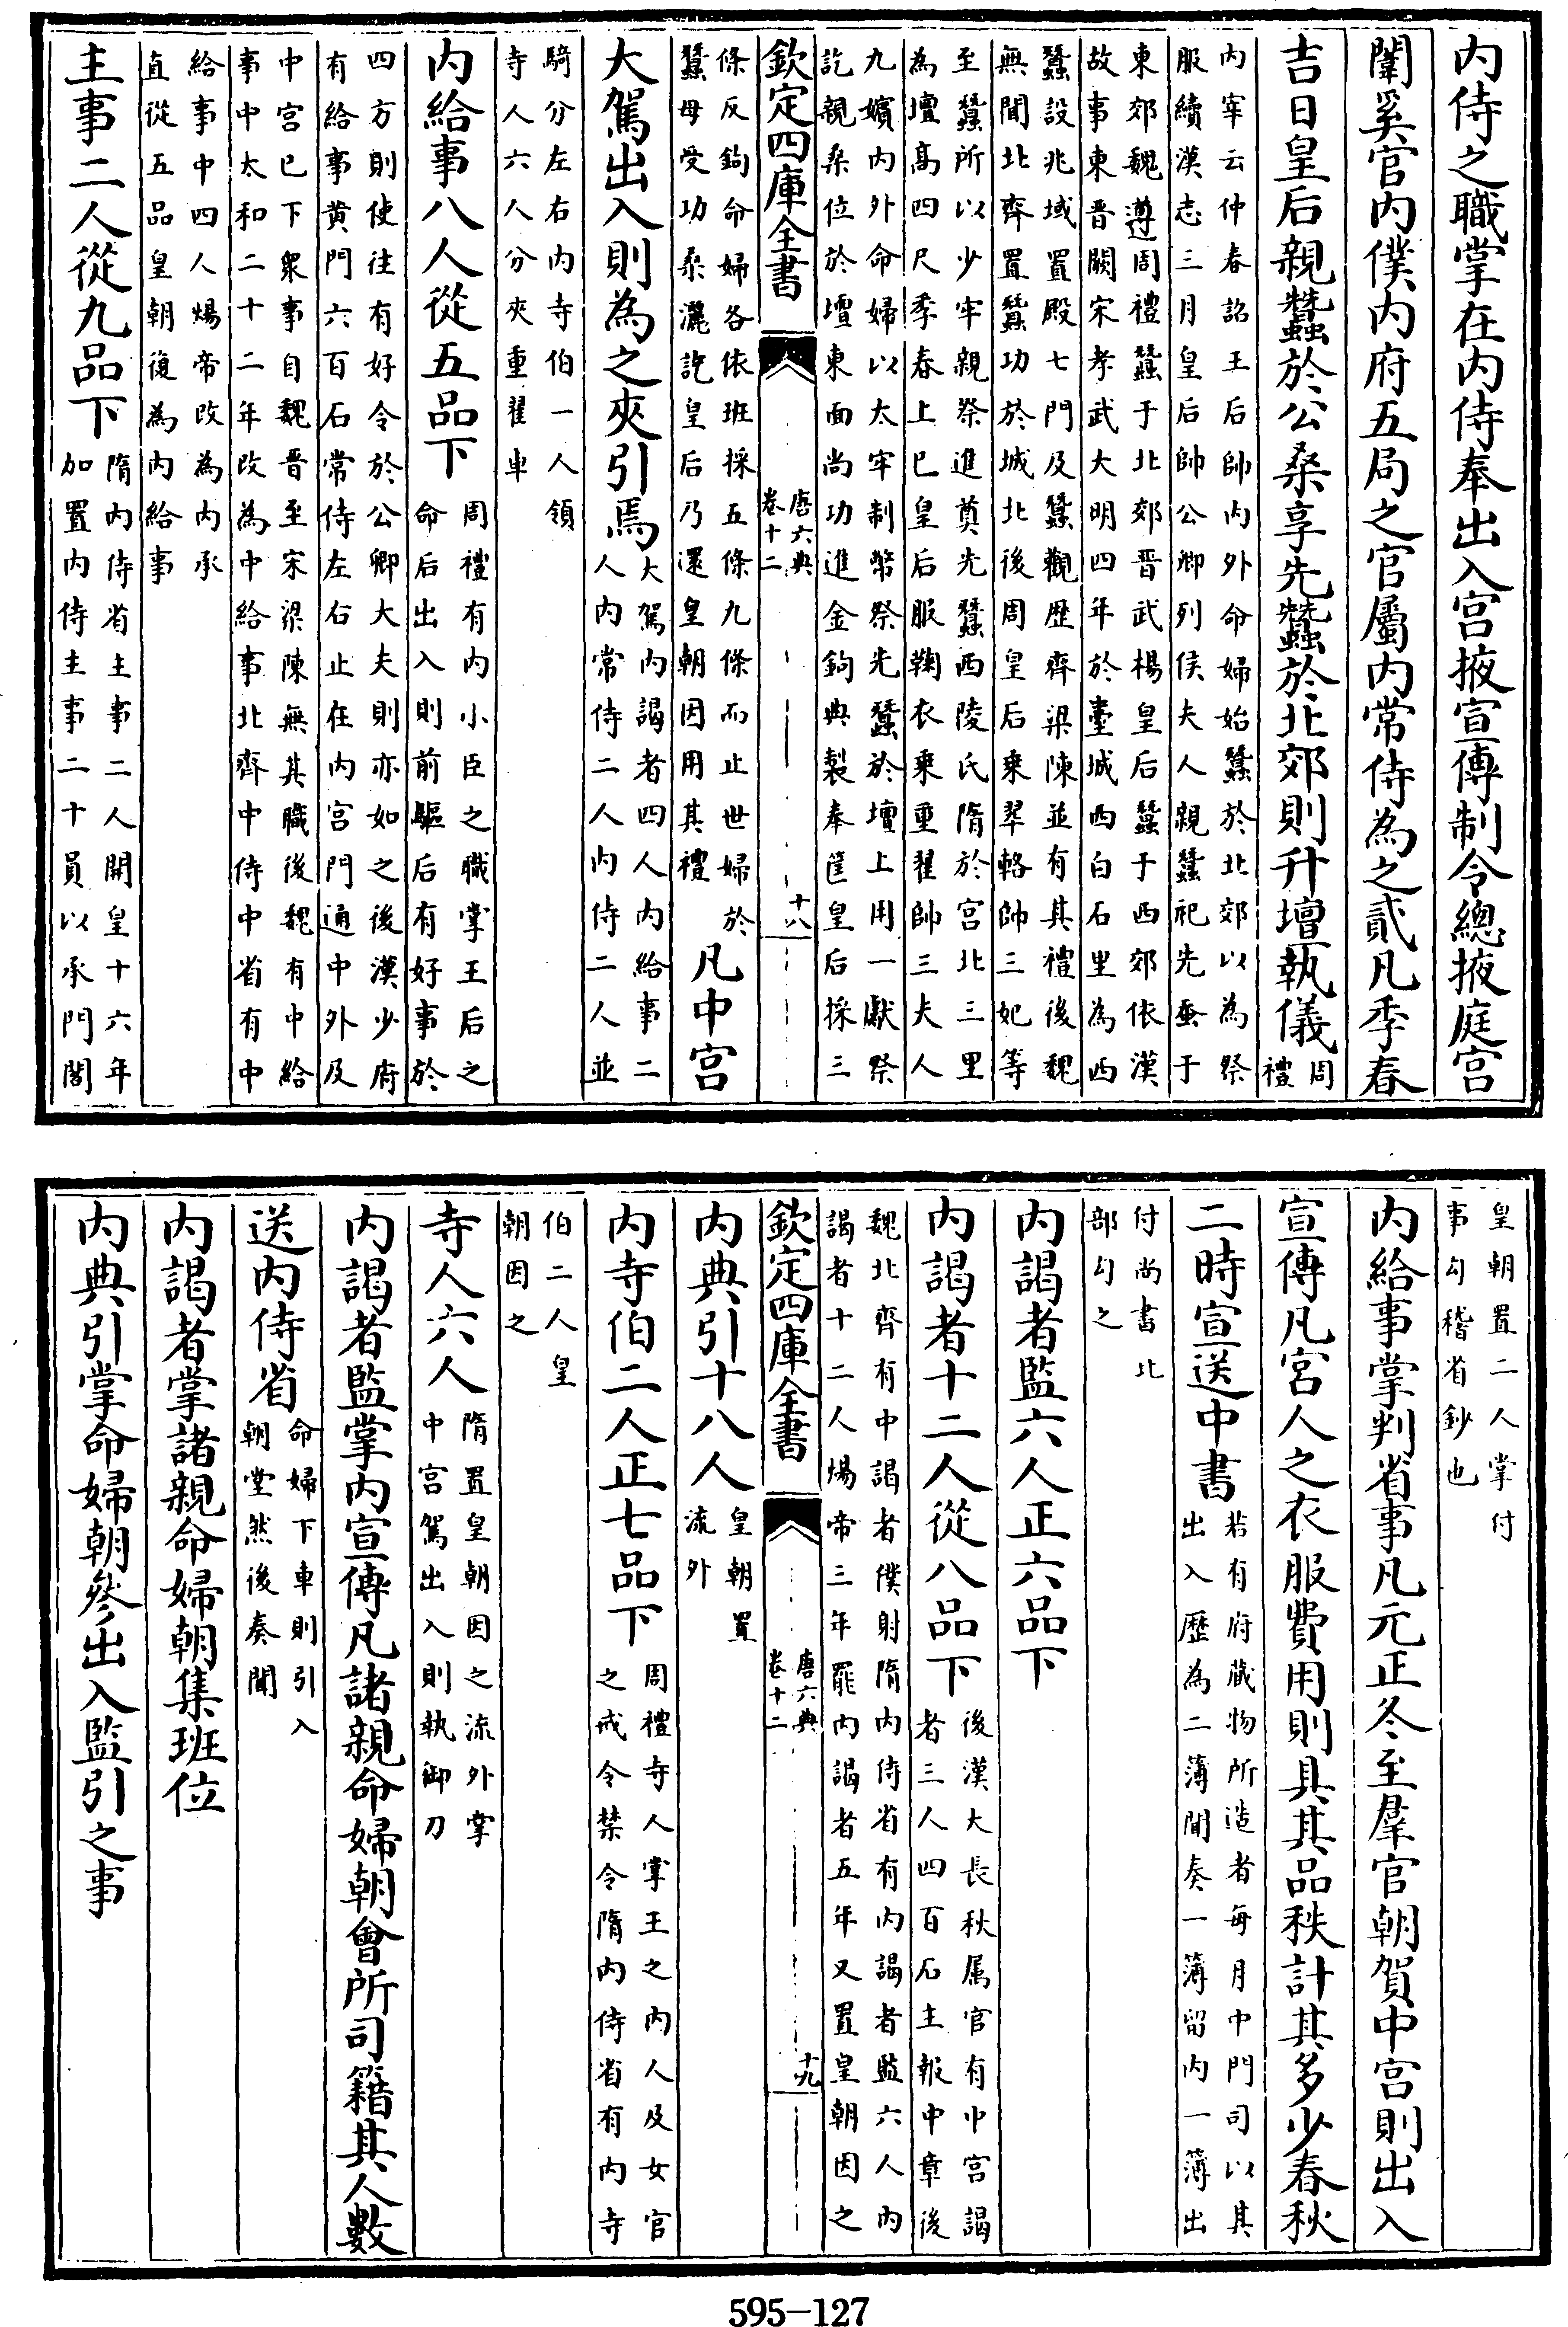 内侍之職掌在内侍奉出入宮掖宣傳制令總掖庭宮
闈奚官内僕内府五局之官屬内常侍為之貳凡季春
吉日皇后親蠶於公桑享先蠶於北郊則升壇執儀周
禮
内宰云仲春詔王后帥内外命婦始蠶於北郊以為祭
服續漢志三月皇后帥公卿列侯夫人親蠶祀先蚕于
東郊魏遵周禮蠶于北郊晋武楊皇后蠶于西郊依漢
故事東晋闕宋孝武大明四年於臺城西白石里為西
蠶設兆域置殿七門及蠶觀歴齊梁陳並有其禮後魏
無聞北齊置蠶功於城北後周皇后乗翠輅帥三妃等
至蠶所以少牢親祭進奠先蠶西陵氏隋於宮北三里
為壇高四尺季春上巳皇后服鞠衣乗重翟帥三夫人
九嬪内外命婦以太牢制幣祭先蠶於壇上用一獻祭
訖親桑位於壇東面尚功進金鉤典製奉筐皇后採三
欽定四庫全書
唐六典
卷十二
十八
條反鉤命婦各依班採五條九條而止世婦於
蠶母受功桑灑訖皇后乃還皇朝因用其禮
凡中宮
大駕出入則為之夾引焉大駕内謁者四人内給事二
人内常侍二人内侍二人並
騎分左右内寺伯一人領
寺人六人分夾重翟車
内給事八人從五品下周禮有内小臣之職掌王后之
命后出入則前驅后有好事於
四方則使往有好令於公卿大夫則亦如之後漢少府
有給事黄門六百石常侍左右止在内宮門通中外及
中宮已下衆事自魏晋至宋梁陳無其職後魏有中給
事中太和二十二年改為中給事北齊中侍中省有中
給事中四人煬帝改為内承
直從五品皇朝復為内給事
主事二人從九品下隋内侍省主事二人開皇十六年
加置内侍主事二十員以承門閤
皇朝置二人掌付
事勾稽省鈔也
内給事掌判省事凡元正冬至羣官朝賀中宮則出入
宣傳凡宮人之衣服費用則具其品秩計其多少春秋
二時宣送中書若有府藏物所造者每月中門司以其
出入歴為二簿聞奏一簿留内一簿出
付尚書比
部勾之
内謁者監六人正六品下
内謁者十二人從八品下後漢大長秋属官有中宮謁
者三人四百石主報中章後
魏北齊有中謁者僕射隋内侍省有内謁者監六人内
謁者十二人煬帝三年罷内謁者五年又置皇朝因之
欽定四庫全書
唐六典
卷十二
十九
内典引十八人皇朝置
流外
内寺伯二人正七品下周禮寺人掌王之内人及女官
之戒令禁令隋内侍省有内寺
伯二人皇
朝因之
寺人六人隋置皇朝因之流外掌
中宮駕出入則執御刀
内謁者監掌内宣傳凡諸親命婦朝會所司籍其人數
送内侍省命婦下車則引入
朝堂然後奏聞
内謁者掌諸親命婦朝集班位
内典引掌命婦朝參出入監引之事
595-127